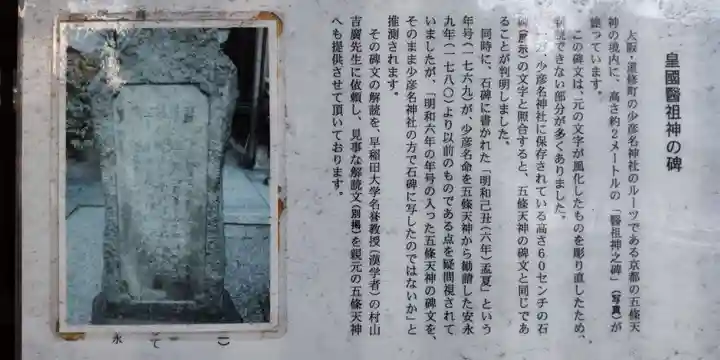 皇國醫祖神の碑
大阪・道修町の少彦名神社のルーツである京都の五條天
神の境内に、高さ約2メートルの「醫祖神之碑」（写真）が
建っています。
この碑文は、元の文字が風化したものを彫り直したため、
判読できない部分が多くありました。
一方、少彦名神社に保存されている高さ60センチの石
碑（展示）の文字と照合すると、五條天神の碑文と同じであ
ることが判明しました。
同時に、石碑に書かれた「明和己丑（六年）孟夏」という
年号（一七六九）が、少彦名命を五條天神から勧請した安永
九年（一七八〇）より以前のものである点を疑問視されて
いましたが、「明和六年の年号の入った五條天神の碑文を、
そのまま少彦名神社の方で石碑に写したのではないか」と
推測されます。
その碑文の解読を、早稲田大学名誉教授（漢学者）の村山
吉廣先生に依頼し、見事な解読文（別掲）を親元の五條天神
へも提供させて頂いております。